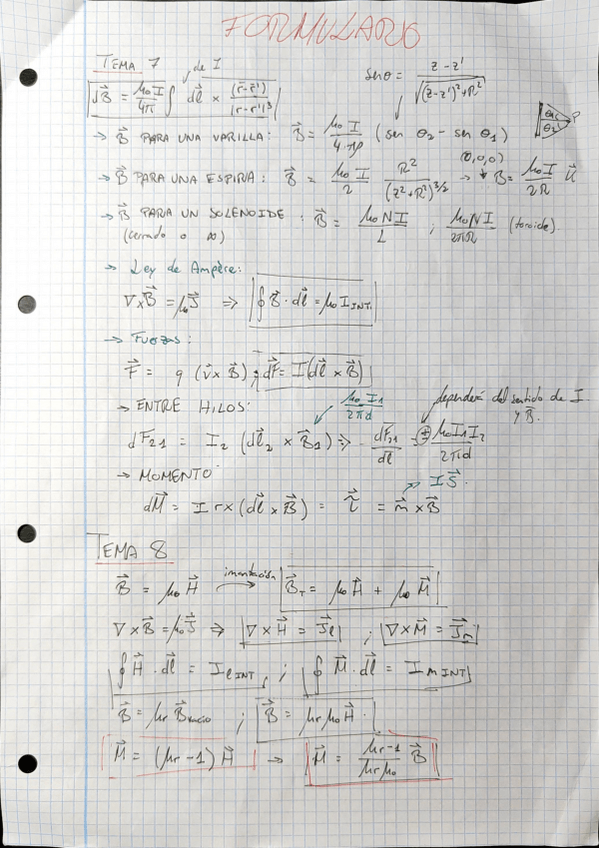 FORMULARIO
TEMA 7
de I
dB⃗ = μ₀I/4π ∮ dl⃗ × (r⃗-r⃗')/|r-r'|³
senθ = z-z'/√((z-z')²+R²)
→ B⃗ PARA UNA VARILLA: B⃗ = μ₀I/4πρ (sen θ₂ - sen θ₁)
θ₁ θ₂ P
→ B⃗ PARA UNA ESPIRA: B⃗ = μ₀I/2 R²/(z²+R²)^3/2 → (0,0,0) B = μ₀I/2R u⃗
→ B⃗ PARA UN SOLENOIDE: B⃗ = μ₀NI/L ; μ₀NI/2πR (toroide).
(cerrado o ∞)
→ Ley de Ampère:
∇×B⃗ = μ₀J⃗ ⇒ ∮ B⃗·dl⃗ = μ₀ I INT.
→ Fuerzas:
F⃗ = q (v⃗ × B⃗) ; dF⃗ = I(dl⃗ × B⃗)
→ ENTRE HILOS: μ₀I₁/2πd dependerá del sentido de I
y B⃗.
dF₂₁ = I₂ (dl⃗₂ × B⃗₁) ⇒ dF₂₁/dl = ± μ₀I₁I₂/2πd
→ MOMENTO: I S⃗.
dM⃗ = I r × (dl⃗ × B⃗) = τ⃗ = m⃗ × B⃗
TEMA 8
B⃗ = μ₀H⃗ imantación → B⃗T = μ₀H⃗ + μ₀M⃗
∇×B⃗ = μ₀J⃗ ⇒ ∇×H⃗ = J⃗l ; ∇×M⃗ = J⃗m
∮ H⃗·dl⃗ = I l INT ; ∮ M⃗·dl⃗ = I m INT
B⃗ = μr B⃗vacío ; B⃗ = μr μ₀ H⃗.
M⃗ = (μr - 1) H⃗ → M⃗ = μr-1/μrμ₀ B⃗